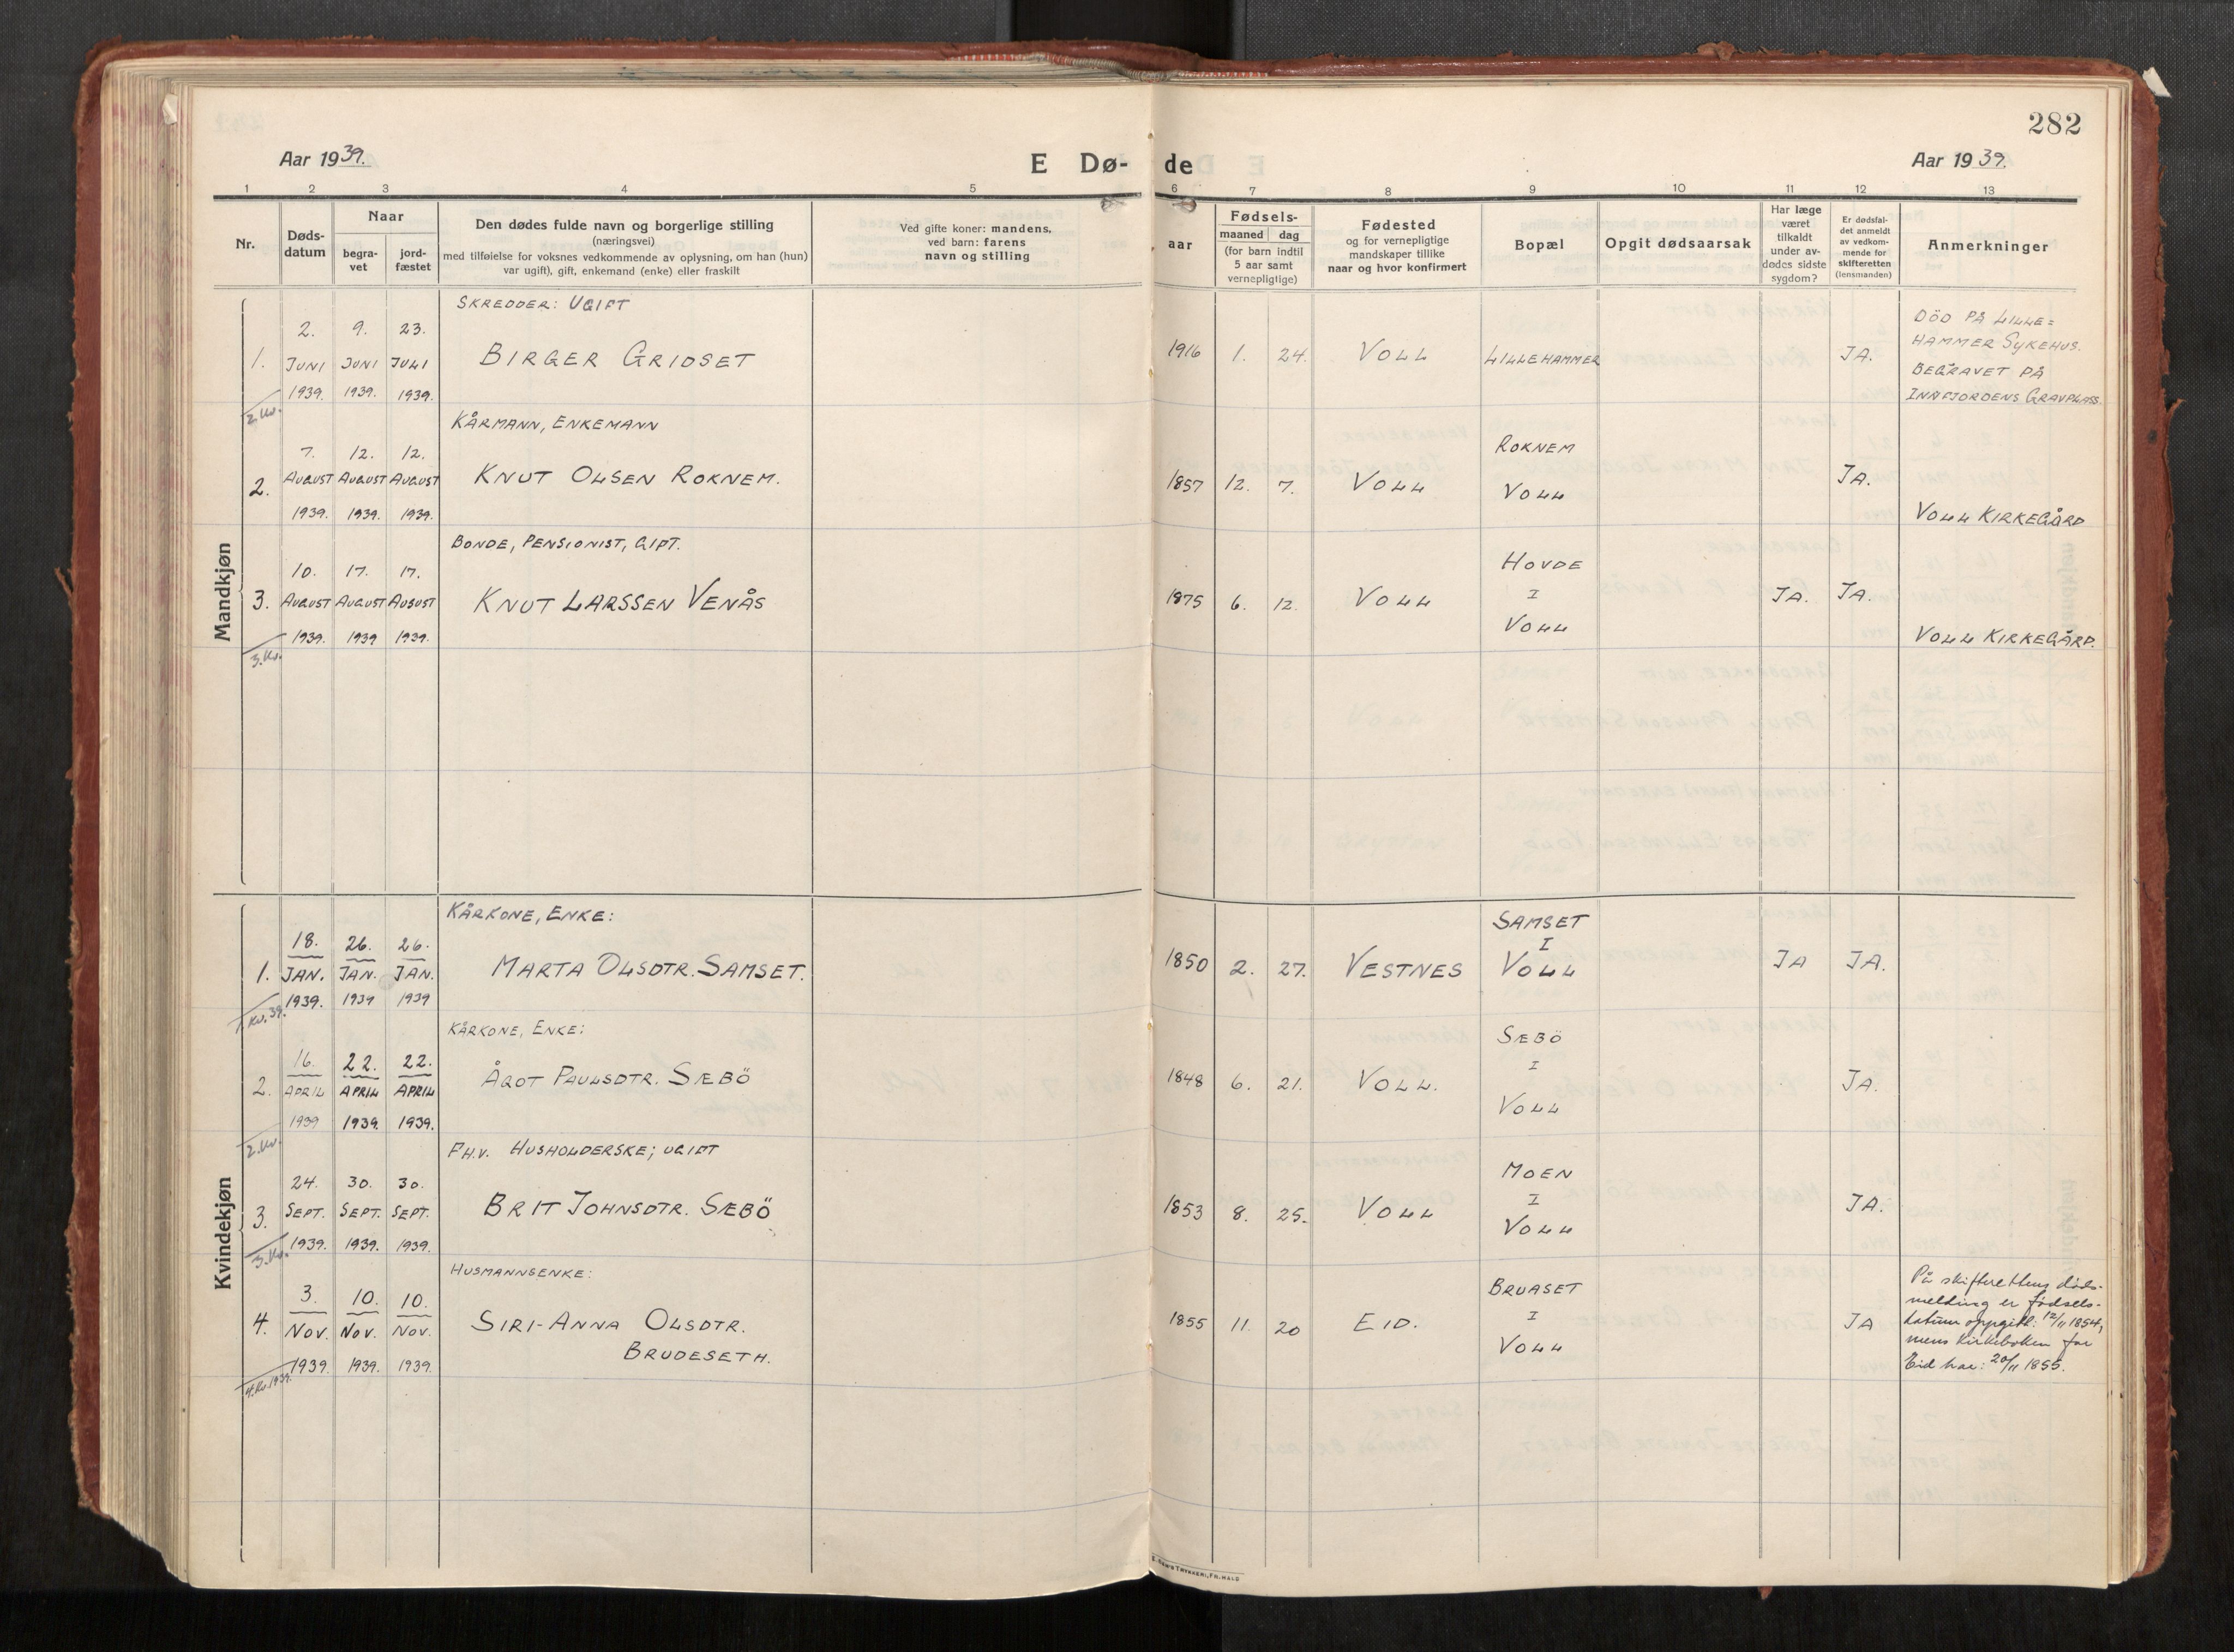 282
Aar 1939.
E Dø-
de
Aar 1939.
1 2 3 4 5 6 7 8 9 10 11 12 13
Nr.
Døds-
datum
Naar
begra-
vet
jord-
fæstet
Den dødes fulde navn og borgerlige stilling
(næringsvei)
med tilføielse for voksnes vedkommende av oplysning, om han (hun)
var ugift), gift, enkemand (enke) eller fraskilt
Ved gifte koner: mandens,
ved barn: farens
navn og stilling
aar
Fødsels-
maaned dag
(for barn indtil
5 aar samt
vernepligtige)
Fødested
og for vernepligtige
mandskaper tillike
naar og hvor konfirmert
Bopæl
Opgit dødsaarsak
Har læge
været
tilkaldt
under av-
dødes sidste
sygdom?
Er dødsfal-
det anmeldt
av vedkom-
mende for
skifteretten
(lensmanden)
Anmerkninger
Mandkjøn
SKREDDER: UGIFT
2. 9. 23.
1. JUNI JUNI JULI BIRGER GRIDSET 1916 1. 24. VOLL LILLEHAMMER JA.
1939. 1939. 1939.
2. kv.
DÖD PÅ LILLE=
HAMMER SYKEHUS.
BEGRAVET PÅ
INNFJORDENS GRAVPLASS.
KÅRMANN, ENKEMANN
7. 12. 12. ROKNEM
2. AUGUST AUGUST AUGUST KNUT OLSEN ROKNEM. 1857 12. 7. VOLL VOLL JA.
1939. 1939. 1939. VOLL KIRKEGÅRD
BONDE, PENSIONIST, GIFT.
10. 17. 17. HOVDE
3. AUGUST AUGUST AUGUST KNUT LARSSEN VENÅS 1875 6. 12. VOLL I JA. JA.
1939. 1939 1939. VOLL VOLL KIRKEGÅRD.
3. kv.
Kvindekjøn
KÅRKONE, ENKE:
18. 26. 26. SAMSET
I
1. JAN. JAN. JAN. MARTA OLSDTR. SAMSET. 1850 2. 27. VESTNES VOLL JA JA.
1939. 1939 1939
1 kv. 39.
KÅRKONE, ENKE:
16. 22. 22. SÆBÖ
2. APRIL APRIL APRIL ÅGOT PAULSDTR. SÆBÖ 1848 6. 21. VOLL. I JA.
1939 1939. 1939. VOLL
2. kv.
FH.V. HUSHOLDERSKE; UGIFT
24. 30. 30. MOEN
3. SEPT. SEPT. SEPT. BRIT JOHNSDTR. SÆBÖ 1853 8. 25. VOLL I JA.
1939. 1939. 1939. VOLL
3. kv.
HUSMANNSENKE:
3. 10. 10. BRUASET
4. NOV. NOV. NOV. SIRI-ANNA OLSDTR. 1855 11. 20 EID. I JA
BRUDESETH. VOLL
1939. 1939. 1939.
4. kv. 1939.
På skifterettens døds-
melding er fødsels-
datum oppgitt: 12/11 1854,
mens kirkeboken for
Eid har: 20/11 1855.